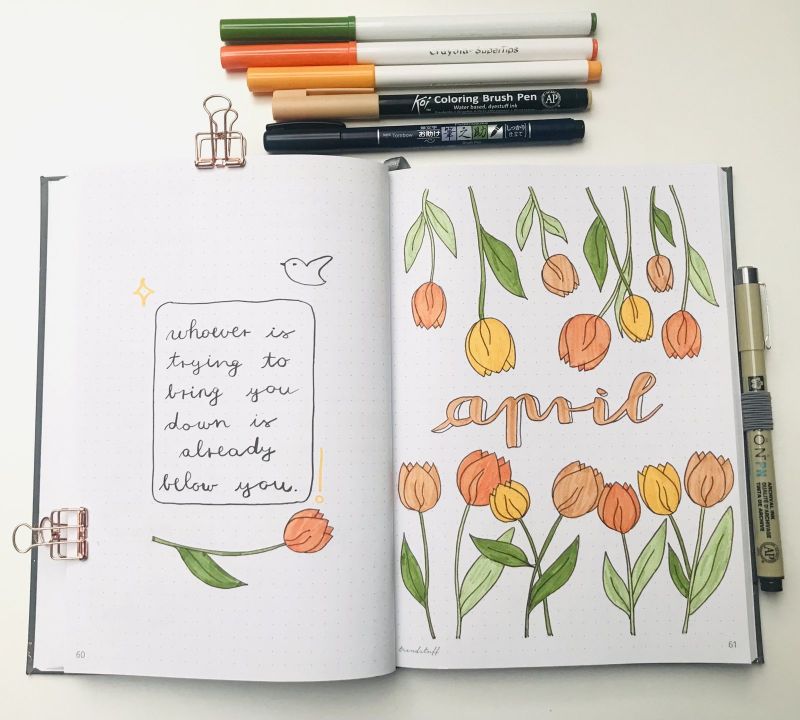 Crayola SuperTips
Koi Coloring Brush Pen
Water based, dyestuff ink
AP
Tombow
しっかり
仕立て
whoever is
trying to
bring you
down is
already
below you.
april
60
61
AP